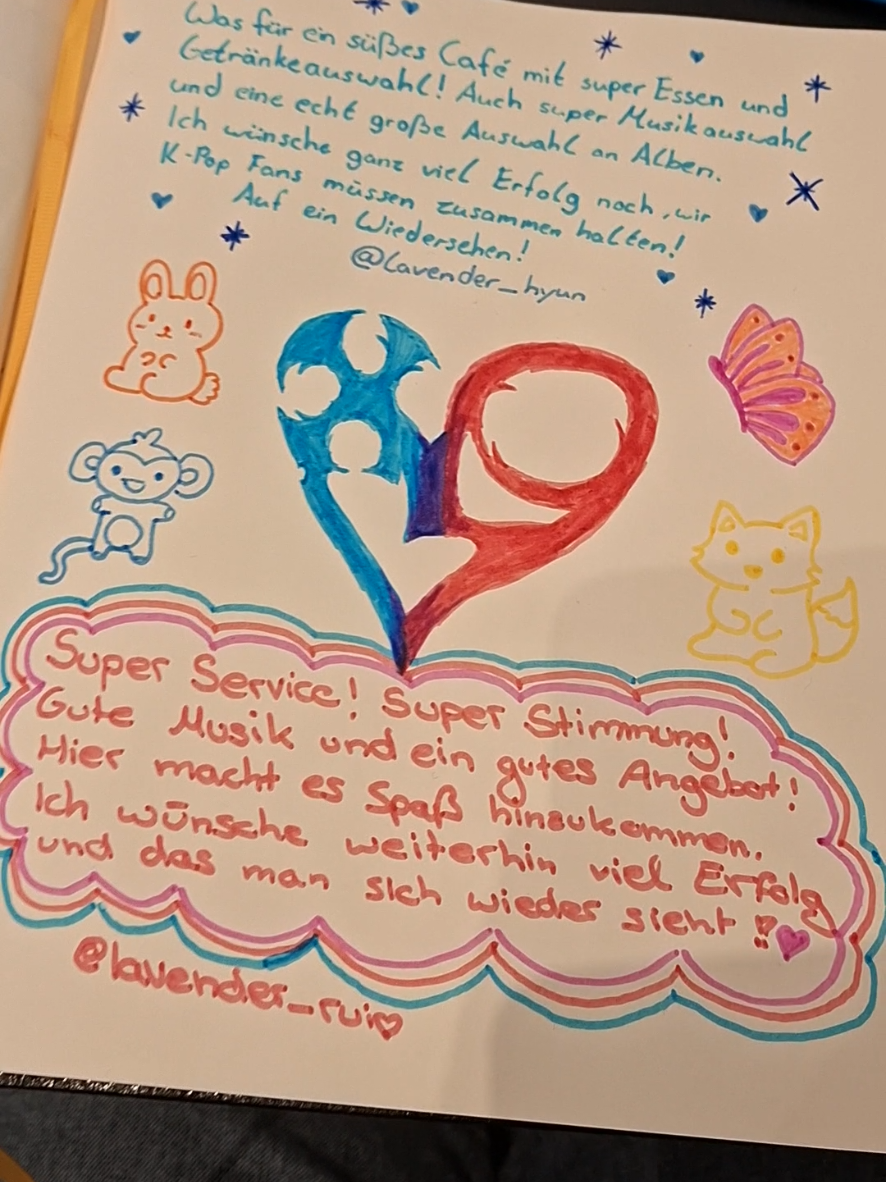 Was für ein süßes Café mit super Essen und
Getränkeauswahl! Auch super Musikauswahl
und eine echt große Auswahl an Alben.
Ich wünsche ganz viel Erfolg noch, wir
K-Pop Fans müssen zusammen halten!
Auf ein Wiedersehen!
@lavender_hyun
Super Service! Super Stimmung!
Gute Musik und ein gutes Angebot!
Hier macht es Spaß hinzukommen.
Ich wünsche weiterhin viel Erfolg
und das man sich wieder sieht!!
@lavender_rui